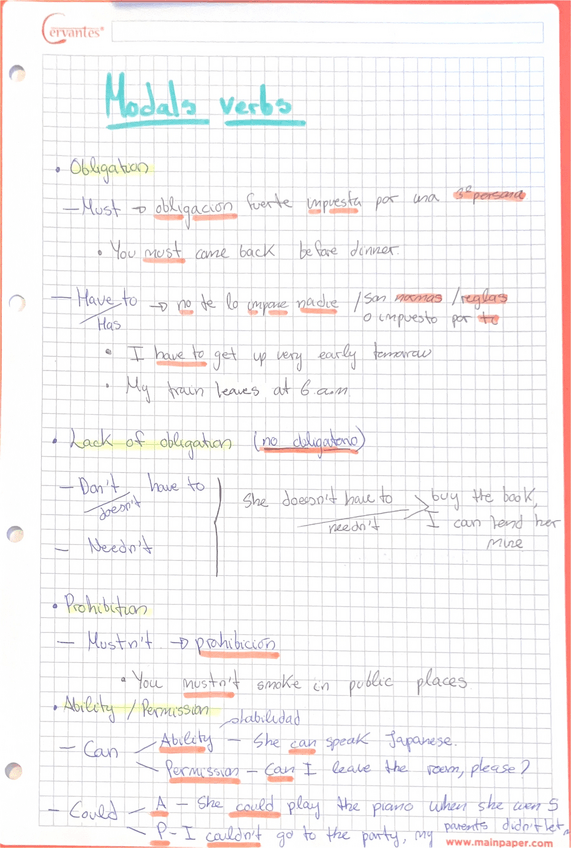 Cervantes
Modals verbs
• Obligation
— Must → obligación fuerte impuesta por una 3ª persona
• You must come back before dinner.
— Have to → no te lo impone nadie / son normas / reglas
Has o impuesto por ti
• I have to get up very early tomorrow
• My train leaves at 6 am
• Lack of obligation (no obligatorio)
— Don't have to
doesn't
— Needn't
She doesn't have to
needn't
buy the book,
I can lend her
mine
• Prohibition
— Mustn't → prohibición
• You mustn't smoke in public places
• Ability / Permission
habilidad
— Can
Ability — She can speak Japanese.
Permission — Can I leave the room, please?
— Could
A — She could play the piano when she was 5
P - I couldn't go to the party, my parents didn't let
www.mainpaper.com